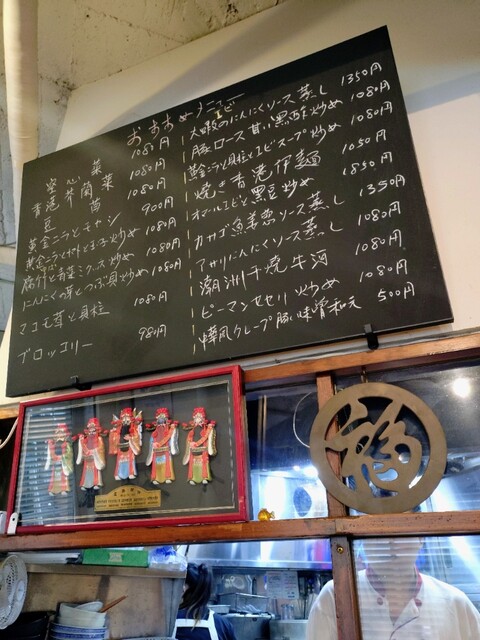 おすすめメニュー
空心菜 1080円
青港芥蘭菜 1080円
豆苗 1080円
黄金ニラとモヤシ 900円
黄金ニラとポテトと玉子炒め 1080円
腐竹と青菜ミックス炒め 1080円
にんにくの芽とつぶ貝炒め 1080円
マコモ茸と貝柱 1080円
ブロッコリー 980円
エビ
大蝦のにんにくソース蒸し 1350円
豚ロース甘い黒酢炒め 1080円
黄金ニラと貝柱とエビスープ炒め 1080円
焼き香港伊麺 1050円
オマールエビと黒豆炒め 1850円
カサゴ魚姜葱ソース蒸し 1350円
アサリにんにくソース蒸し 1080円
潮洲干焼牛河 1080円
ピーマンセセリ炒め 1080円
中華風クレープ豚い味噌和え 500円
福